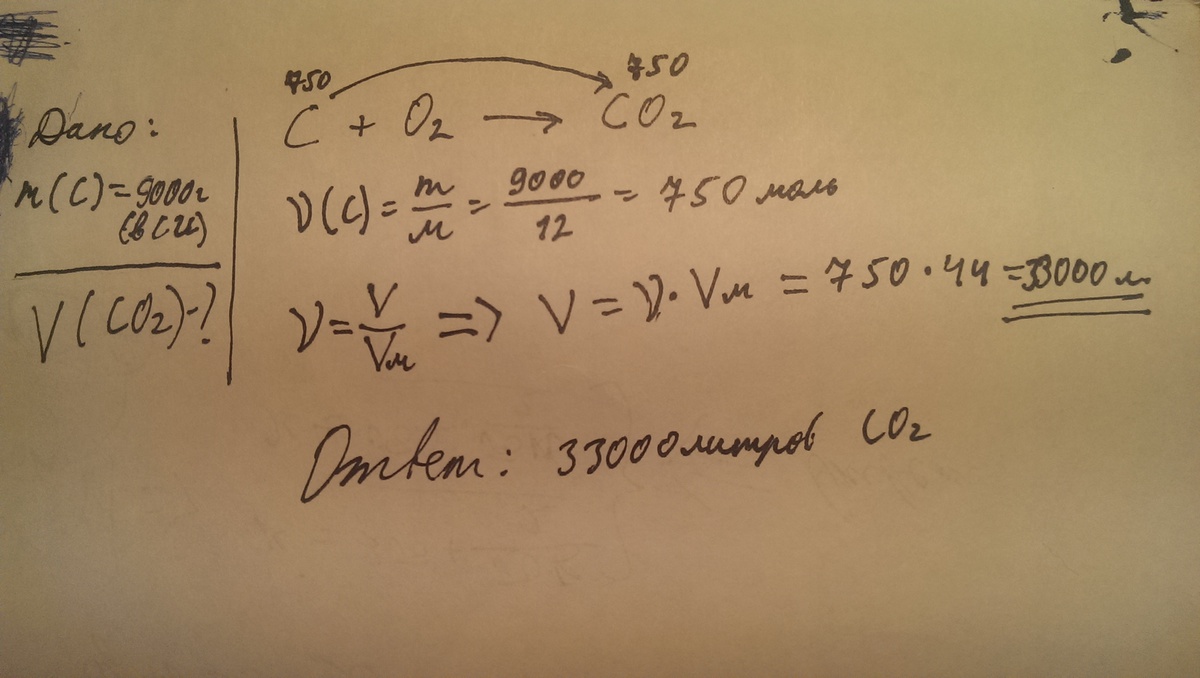 Дано:
m(C)=9000г
(в СИ)
V(CO₂)-?
750 750
C + O₂ → CO₂
ν(C) = m/M = 9000/12 = 750 моль
ν = V/Vм => V = ν·Vм = 750·44 = 33000 л
Ответ: 33000 литров CO₂